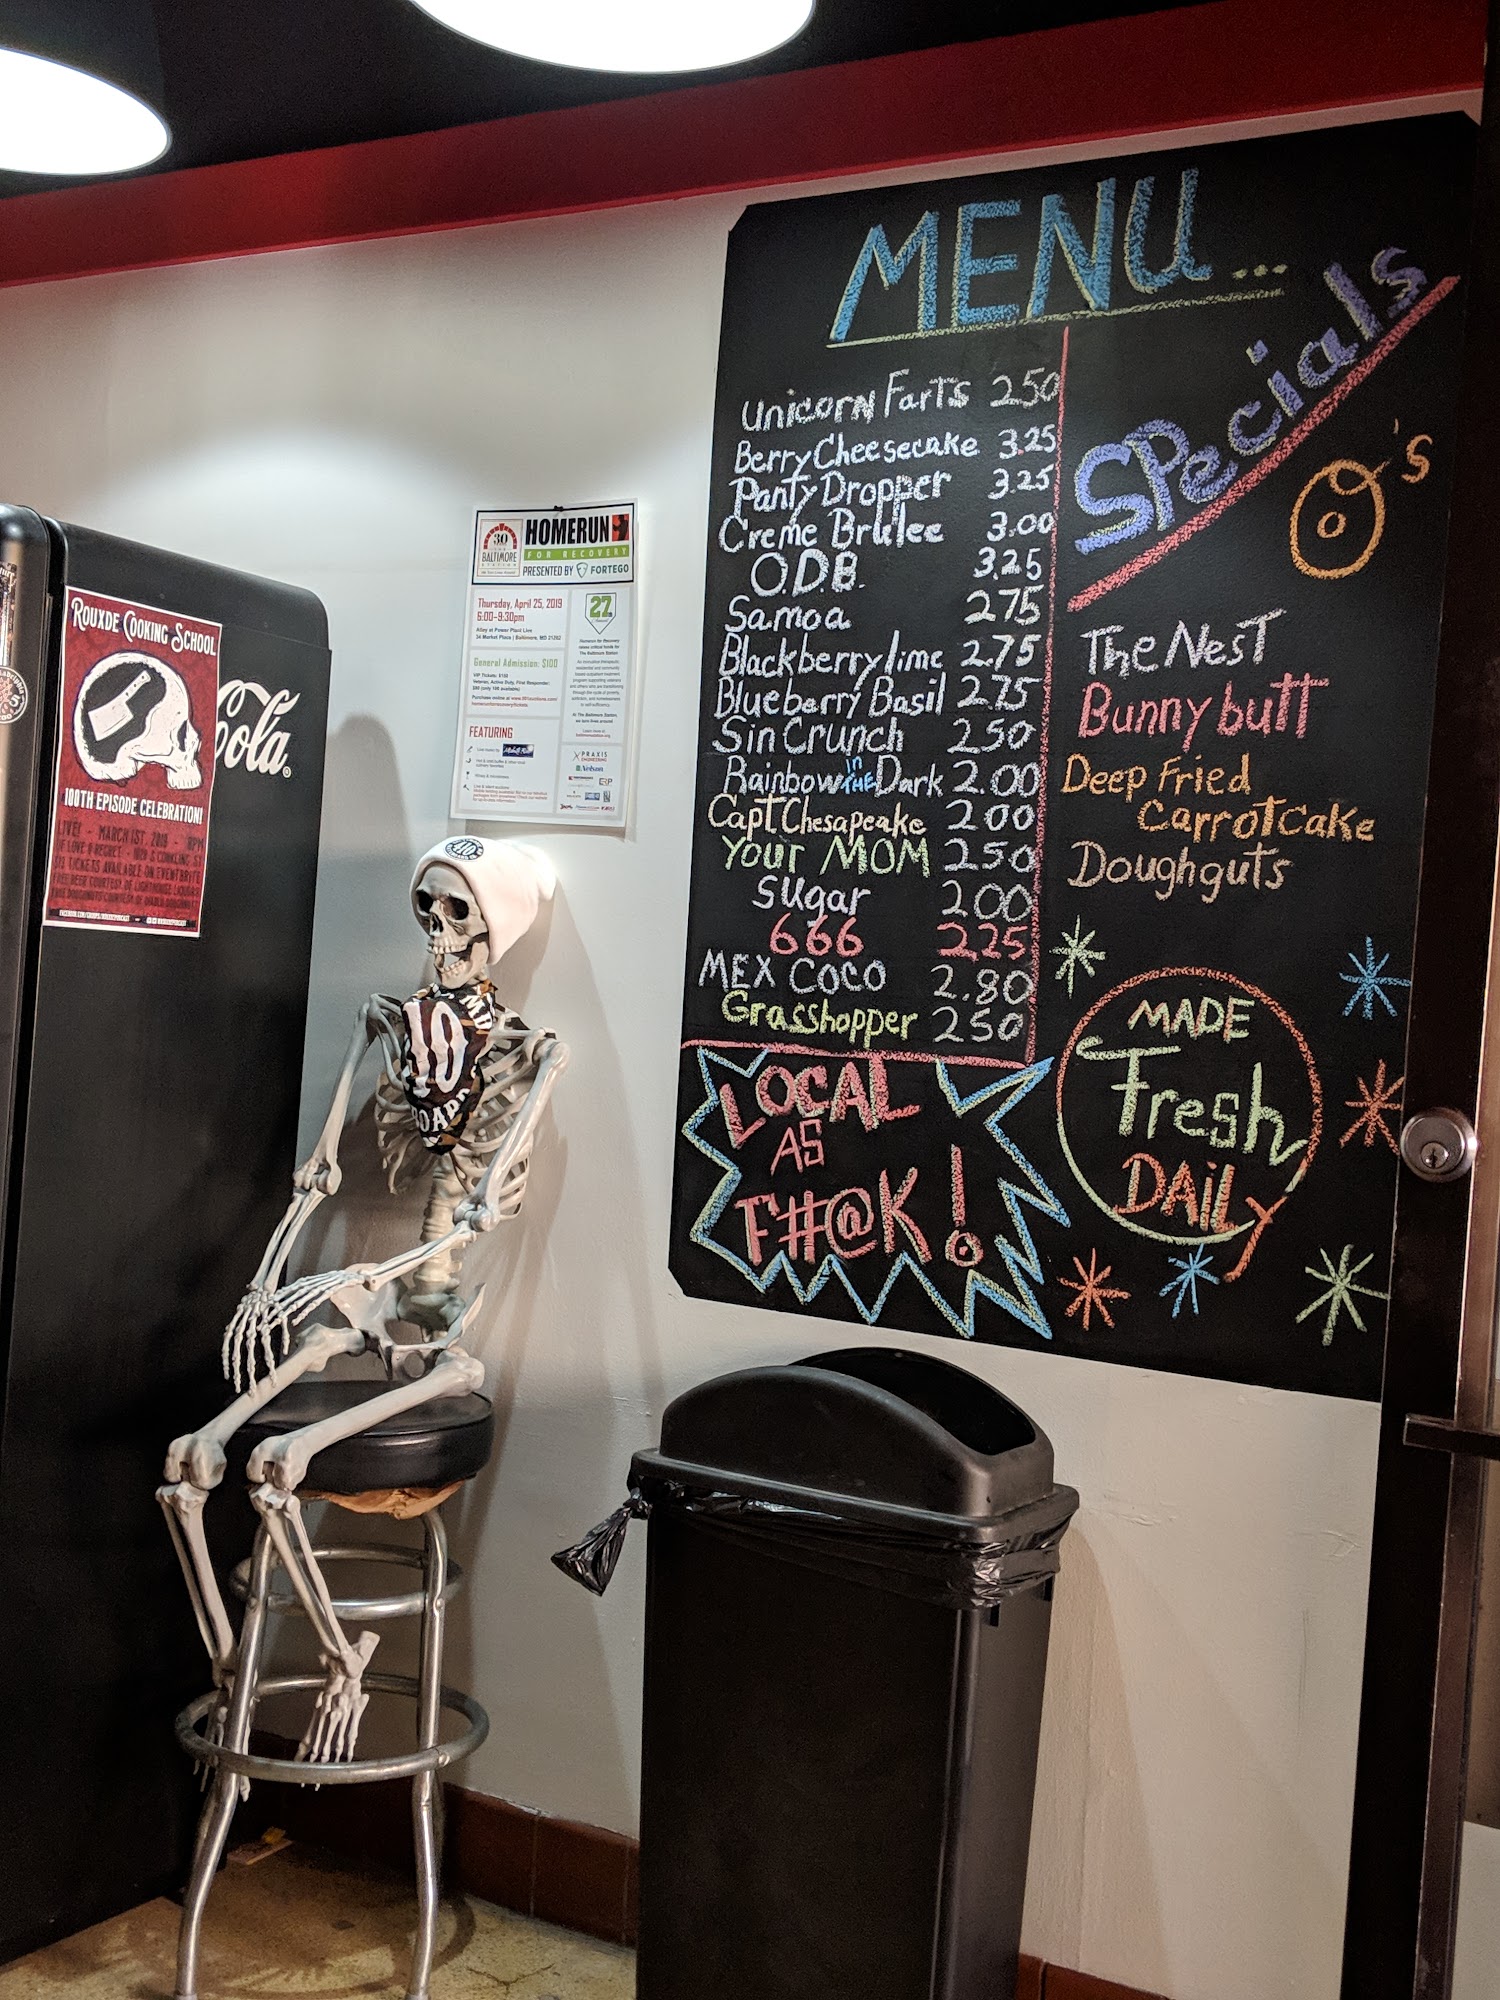 MENU...
Unicorn Farts 2.50
Berry Cheesecake 3.25
Panty Dropper 3.25
Creme Brulee 3.00
O.D.B. 3.25
Samoa 2.75
Blackberry lime 2.75
Blueberry Basil 2.75
Sin Crunch 2.50
Rainbow in THE Dark 2.00
Capt Chesapeake 2.00
Your MOM 2.50
Sugar 2.00
666 2.25
MEX COCO 2.80
Grasshopper 2.50
LOCAL
AS
F#@K!
Specials
O's
The Nest
Bunny butt
Deep Fried
Carrot Cake
Doughguts
MADE
Fresh
DAILY
HOMERUN
FOR RECOVERY
PRESENTED BY FORTEGO
30
BALTIMORE
STATION
Thursday, April 25, 2019
6:00-9:30pm
Alley at Power Plant Live
34 Market Place | Baltimore, MD 21202
General Admission: $100
FEATURING
27
PRAXIS
ENGINEERING
Nelson
ROUXDE COOKING SCHOOL
100TH EPISODE CELEBRATION!
LIVE! - MARCH 1ST 2019 - 8PM
Cola
410
10